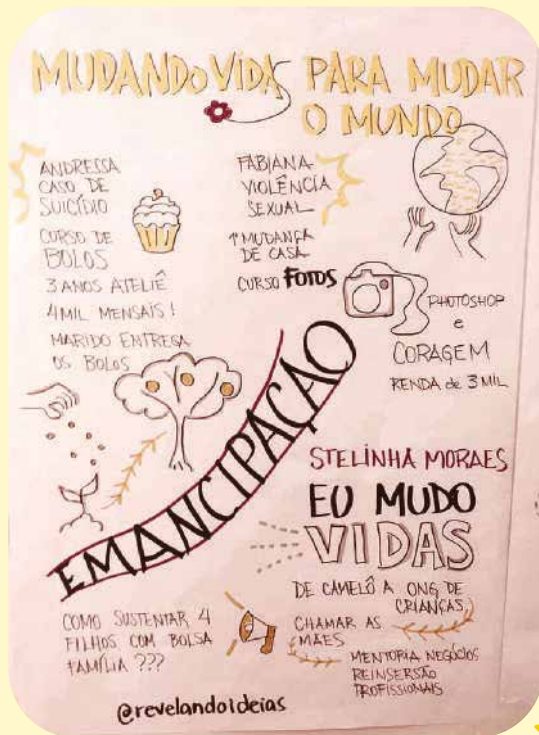 MUDANDO VIDAS PARA MUDAR
O MUNDO
ANDRESSA
CASO DE
SUICÍDIO
CURSO DE
BOLOS
3 ANOS ATELIÊ
4 MIL MENSAIS!
MARIDO ENTREGA
OS BOLOS
FABIANA
VIOLÊNCIA
SEXUAL
1ª MUDANÇA
DE CASA
CURSO FOTOS
PHOTOSHOP
e
CORAGEM
RENDA de 3 MIL
EMANCIPAÇÃO
STELINHA MORAES
EU MUDO
VIDAS
DE CAMELÔ A ONG DE
CRIANÇAS
CHAMAR AS
MÃES
MENTORIA NEGÓCIOS
REINSERSÃO
PROFISSIONAIS
COMO SUSTENTAR 4
FILHOS COM BOLSA
FAMÍLIA ???
@revelandoideias